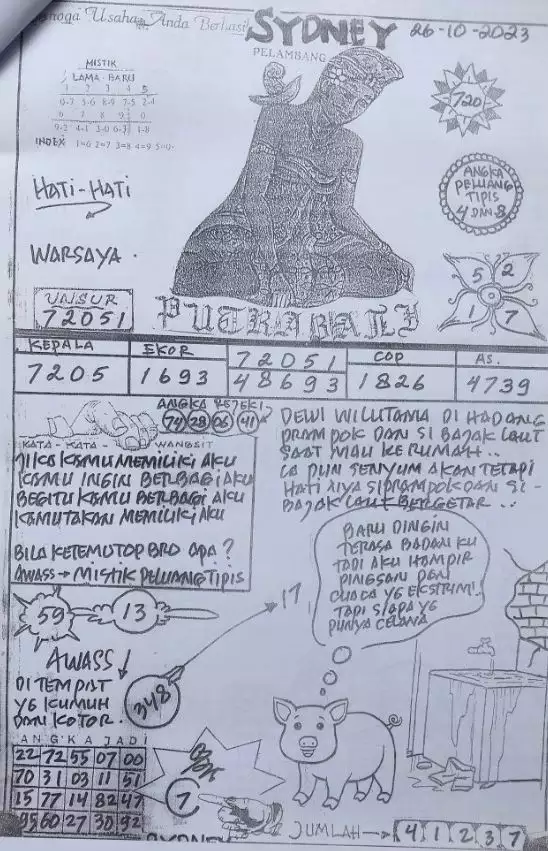 Semoga Usaha Anda Berhasil
SYDNEY
26-10-2023
PELAMBANG
MISTIK
LAMA - BARU
1 2 3 4 5
0-7 5-6 8-9 7-5 2-4
6 7 8 9 0
9-2 4-1 3-0 6-3 1-8
INDEX 1=6 2=7 3=8 4=9 5=0
720
ANGKA
PELUANG
TIPIS
4 DAN 8
HATI-HATI
WARSAYA
5 2
1 7
UNSUR
72051
PUTRA BALI
KEPALA
7205
EKOR
1693
72051
48693
COP
1826
AS.
4739
ANGKA REJEKI
74 28 06 41
KATA - KATA - WANGSIT
JIKA KAMU MEMILIKI AKU
KAMU INGIN BERBAGI AKU
BEGITU KAMU BERBAGI AKU
KAMU TAKAN MEMILIKI AKU
BILA KETEMU TOP BRO APA ?
AWASS → MISTIK PELUANG TIPIS
DEWI WILUTAMA DI HADANG
PRAMPOK DAN SI BAJAK LAUT
SAAT MAU KERUMAH..
IA PUN SENYUM AKAN TETAPI
HATINYA SI PRAMPOK DAN SI -
BAJAK LAUT BERGETAR ..
BARU DINGIN
TERASA BADAN KU
TADI AKU HAMPIR
PINGSAN DAN
CUACA YG EKSTRIM!.
TAPI SIAPA YG
PUNYA CELANA
59
13
17
AWASS
DI TEMPAT
YG KUMUH
DAN KOTOR.
348
ANGKA JADI
22 72 55 07 00
70 31 03 11 51
15 77 14 82 47
95 60 27 30 92
7
SYDNEY
JUMLAH → 4 1 2 3 7